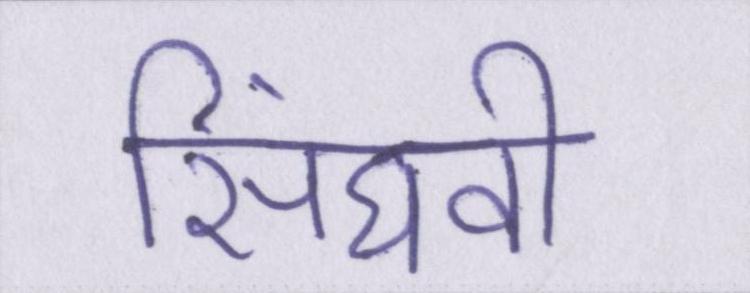 सिंघवी